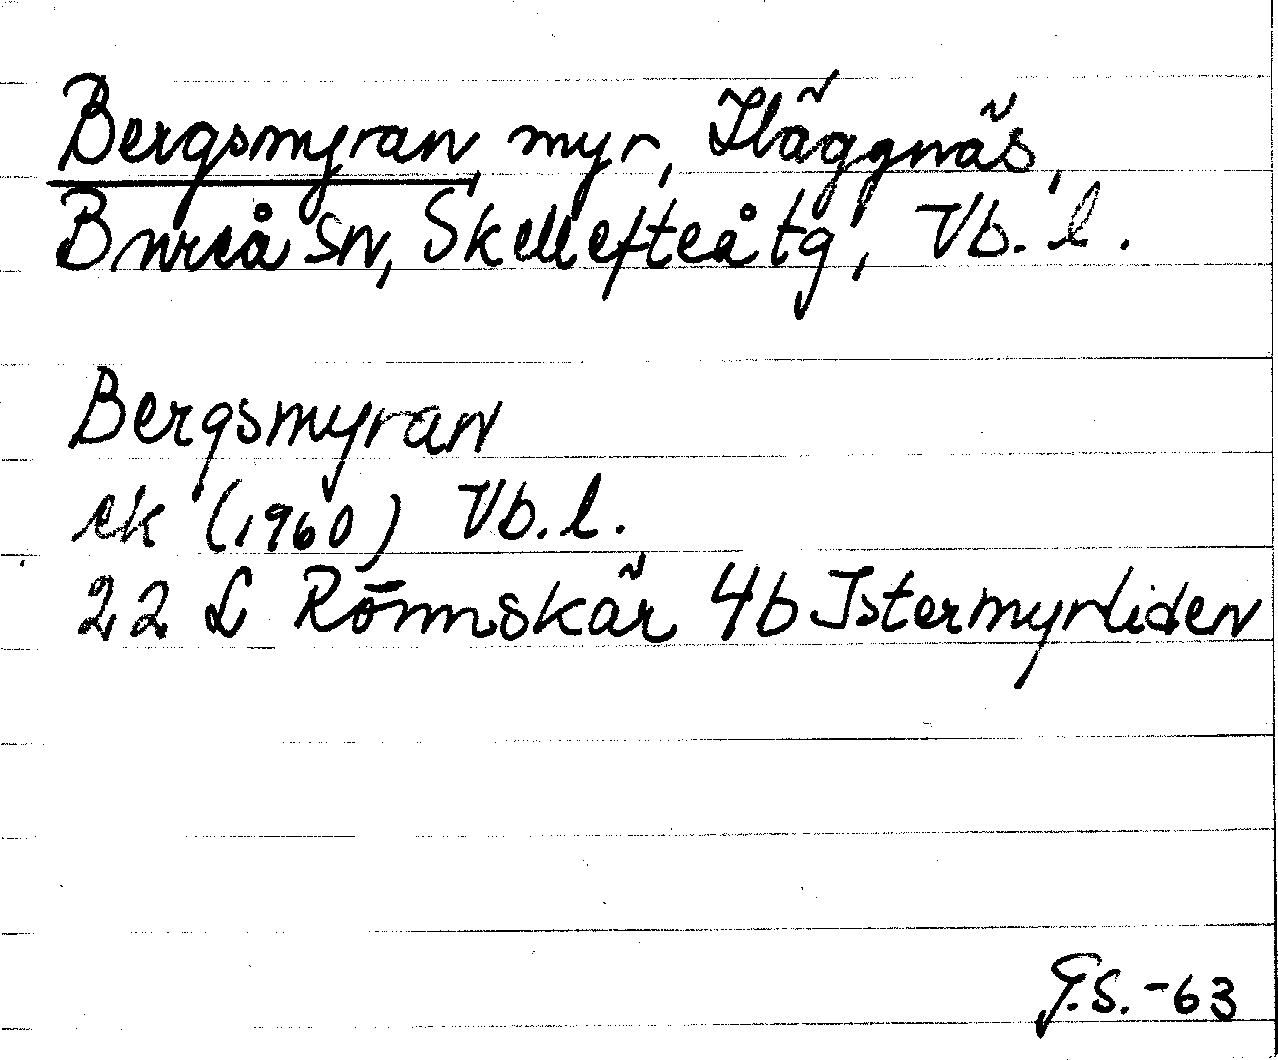 Bergsmyran, myr, Häggnäs,
Bureå sn, Skellefteå tg, Vb. l.
Bergsmyran
ek (1960) Vb. l.
22 L Rönnskär 4b Istermyrliden
G.S. -63